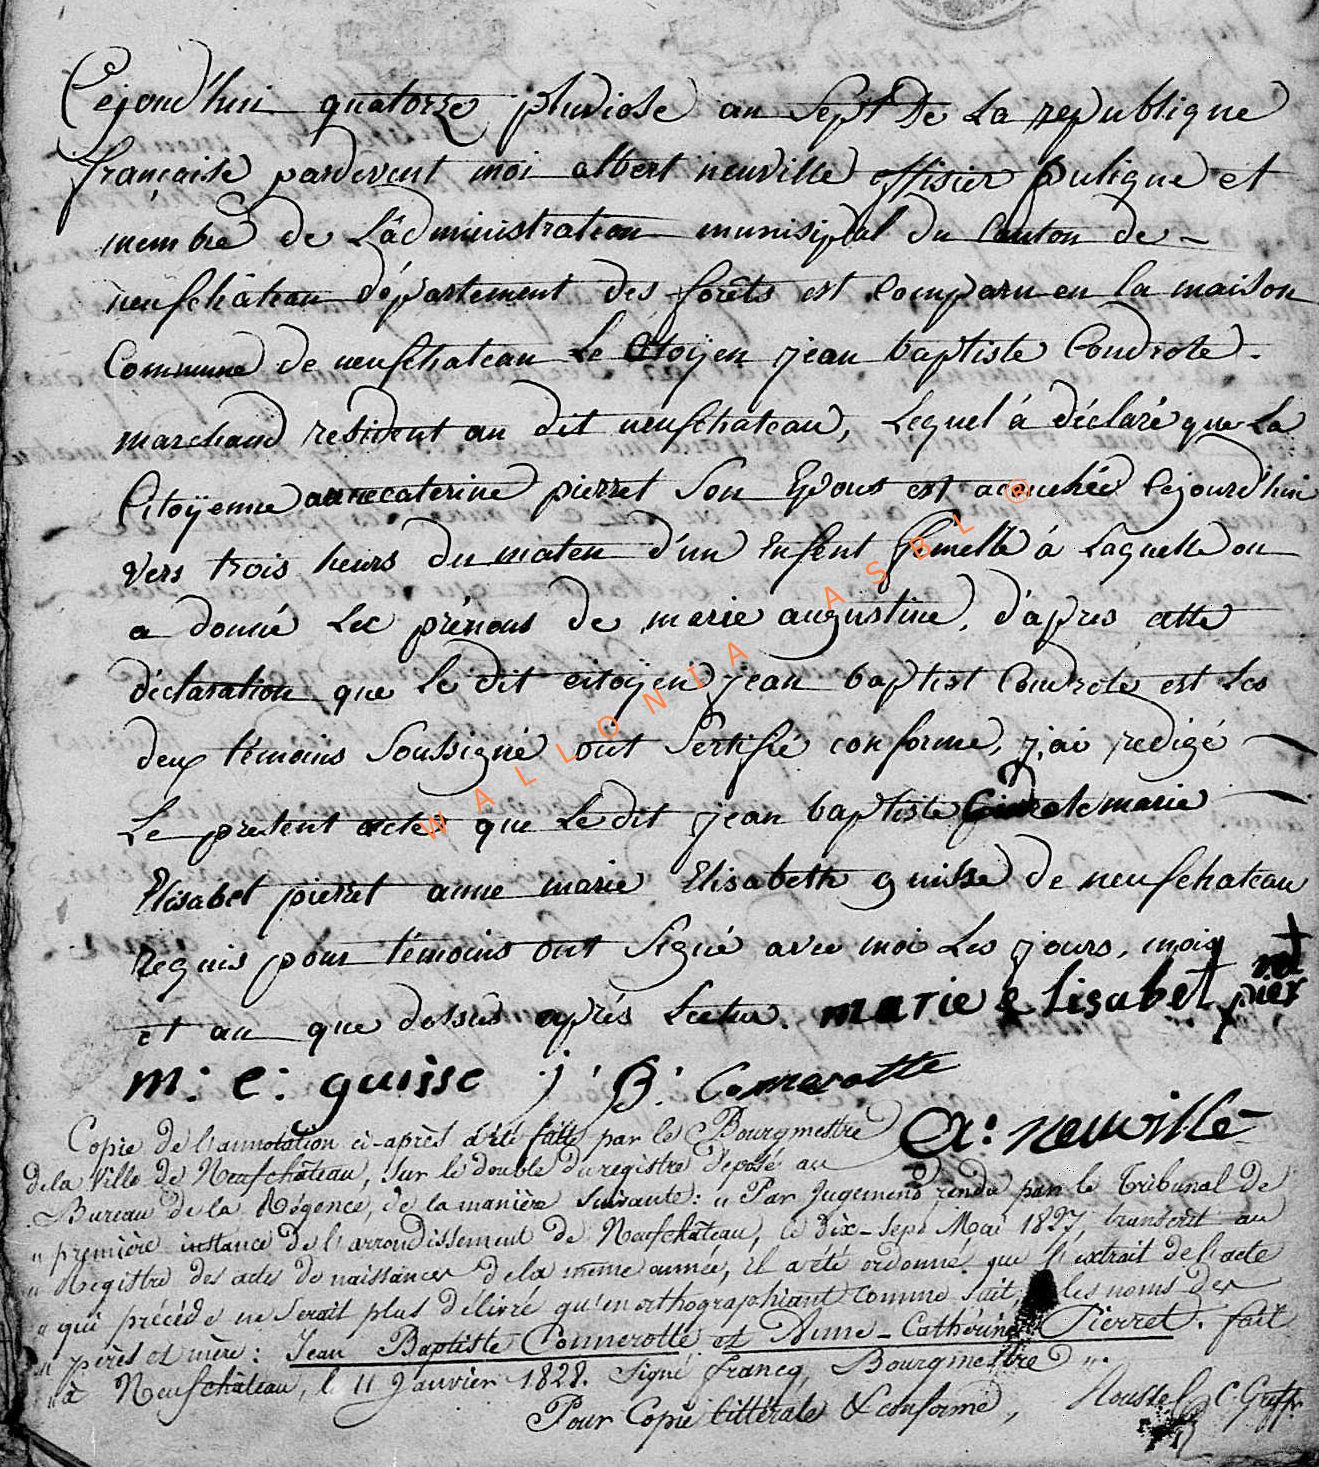 Cejourd'hui quatorze pluviose an Sept De La republique
française pardevent moi albert neuville offisier pulique et
membre de L'administration munisipal du Canton de
neufchâteau département des forêts est Comparu en la maison
Commune de neufchateau Le Citoÿen jean baptiste Condrote
marchand resident au dit neufchateau, Lequel à déclaré que La
Citoÿenne annecaterine pierret Son Epous est acouchée Cejourd'hui
vers trois heurs du maten d'un Enfent femelle à Laquelle on
a donné Les prénons de marie augustine, d'apres cette
déclaration que Le dit citoÿen jean baptist Condrote est Les
deux témoins Soussigné ont Sertifié conforme, j'ai redigé
Le present acte que Le dit jean baptiste marie
Elisabet pierret anne marie Elisabeth guisse de neufchateau
Requis pour témoins ont Signé avec moi Les jours, mois
et an que dessus après Lectur. marie Elisabet pier
ret
m: e: guisse j: B: Comerotte
A: neuville
Copie de l'annotation ci-après a été faite par le Bourgmestre
de la Ville de Neufchâteau, sur le double du registre déposé au
Bureau de la Régence, de la manière suivante: " Par Jugement rendu par le Tribunal de
" première instance de l'arrondissement de Neufchâteau, le dix-sept Mai 1827, transcrit au
" Registre des actes de naissances de la même année, il a été ordonné que l'extrait de l'acte
" qui précède ne serait plus délivré qu'en orthographiant comme suit, les noms des
" pères et mère: Jean Baptiste Connerotte et Anne-Catherine Pierret. fait
" à Neufchâteau, le 11 Janvier 1828. Signé francq, Bourgmestre ".
Pour Copie littérale & conforme, C. Greff.
WALLONIA ASBL ©